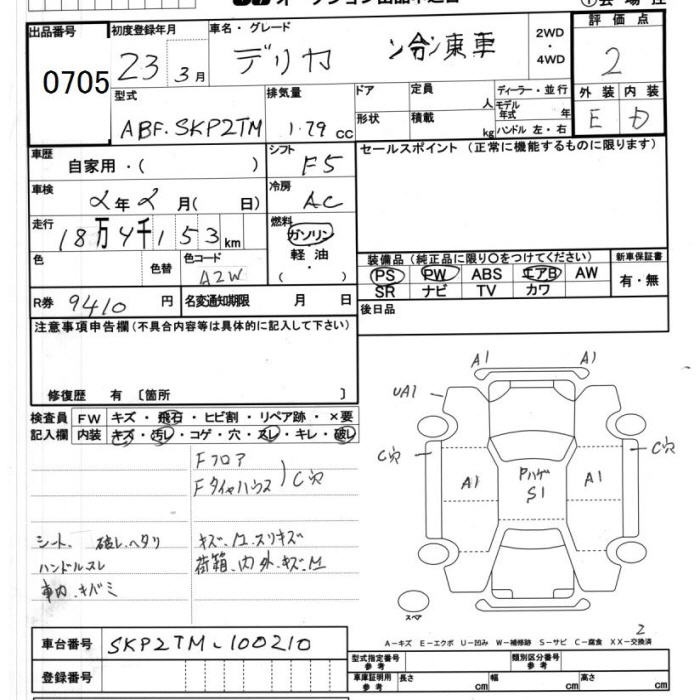 出品番号 0705
初度登録年月 23 3月
車名・グレード デリカ 冷凍車
2WD ・ 4WD
評価点 2
型式 ABF-SKP2TM
排気量 1.79 cc
ドア
形状
定員 人
積載 kg
ディーラー・並行
モデル年式 年
ハンドル 左・右
外装 E
内装 D
車歴 自家用・( )
シフト F5
セールスポイント (正常に機能するものに限ります)
車検 2年2月( 日)
冷房 AC
走行 18万4千153km
燃料 ガソリン 軽油
色 色替
色コード A2W
装備品 (純正品に限り○をつけてください)
PS PW ABS エアB AW
SR ナビ TV カワ
新車保証書 有・無
R券 9410円
名変通知期限 月 日
後日品
注意事項申告欄 (不具合内容等は具体的に記入して下さい)
修復歴 有 〔箇所 〕
検査員記入欄
FW キズ・飛石・ヒビ割・リペア跡・×要
内装 キズ・汚レ・コゲ・穴・スレ・キレ・破レ
Fフロア
Fタイヤハウス
C穴
シート、破レ、ヘタリ
キズ、凹、スリキズ
ハンドルスレ
荷箱、内外、キズ、凹
車内、キバミ
A1 A1
UA1
C穴 C穴
A1 Pハゲ S1 A1
スペア
2
A-キズ E-エクボ U-凹み W-補修跡 S-サビ C-腐食 XX-交換済
車台番号 SKP2TM-100210
登録番号
型式指定番号 参考
類別区分番号 参考
車庫証明用 参考
長さ cm 幅 cm 高さ cm